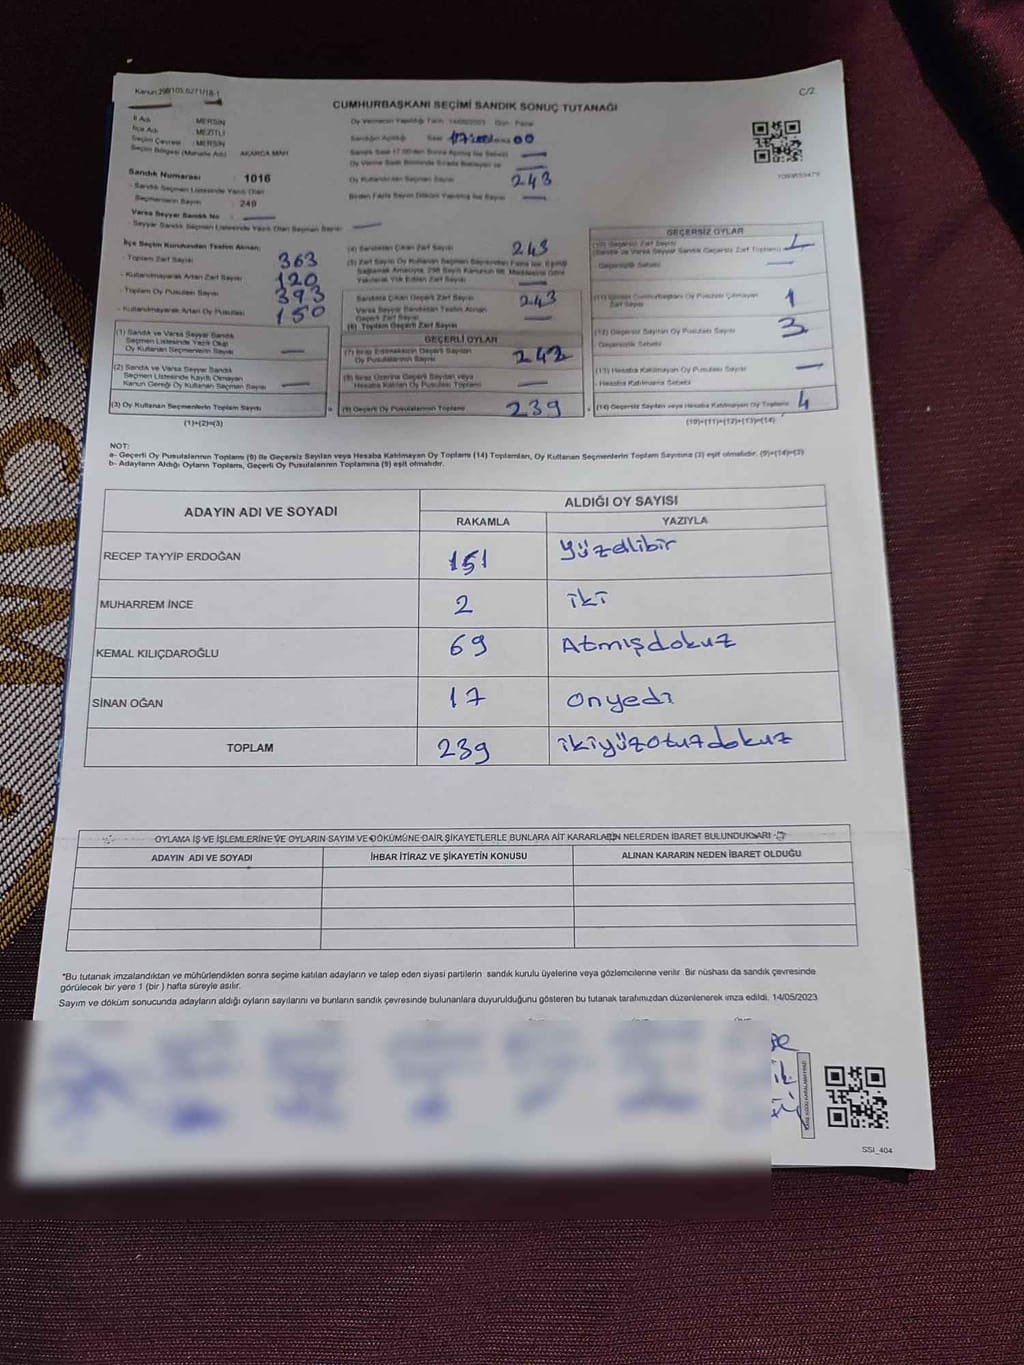 Kanun:298/105,6271/18-1
C/2
CUMHURBAŞKANI SEÇİMİ SANDIK SONUÇ TUTANAĞI
İl Adı : MERSİN
İlçe Adı : MEZİTLİ
Seçim Çevresi : MERSİN
Seçim Bölgesi (Mahalle Adı) : AKARCA MAH
Oy Vermenin Yapıldığı Tarih: 14/05/2023 Gün: Pazar
Sandığın Açıldığı Saat 17
Oy Kullandırılan Seçmen Sayısı 243
Sandık Numarası : 1016
- Sandık Seçmen Listesinde Yazılı Olan
Seçmenlerin Sayısı : 249
Varsa Seyyar Sandık No
- Seyyar Sandık Seçmen Listesinde Yazılı Olan Seçmen Sayısı
İlçe Seçim Kurulundan Teslim Alınan;
- Toplam Zarf Sayısı 363
- Kullanılmayarak Artan Zarf Sayısı 120
- Toplam Oy Pusulası Sayısı 393
- Kullanılmayarak Artan Oy Pusulası 150
(1) Sandık ve Varsa Seyyar Sandık
Seçmen Listesinde Yazılı Olup
Oy Kullanan Seçmenlerin Sayısı
(2) Sandık ve Varsa Seyyar Sandık
Seçmen Listesinde Kayıtlı Olmayan
Kanun Gereği Oy Kullanan Seçmen Sayısı
(3) Oy Kullanan Seçmenlerin Toplam Sayısı
(1)+(2)=(3)
(4) Sandıktan Çıkan Zarf Sayısı 243
Sandıkta Çıkan Geçerli Zarf Sayısı 243
Varsa Seyyar Sandıktan Teslim Alınan
Geçerli Zarf Sayısı
(6) Toplam Geçerli Zarf Sayısı
GEÇERLİ OYLAR
(7) İtiraz Edilmeksizin Geçerli Sayılan
Oy Pusulalarının Sayısı 242
(8) İtiraz Üzerine Geçerli Sayılan veya
Hesaba Katılan Oy Pusulası Toplamı
(9) Geçerli Oy Pusulalarının Toplamı 239
GEÇERSİZ OYLAR
(10) Geçersiz Zarf Sayısı
(Sandık ve Varsa Seyyar Sandık Geçersiz Zarf Toplamı)
- Geçersizlik Sebebi
1
(12) Geçersiz Sayılan Oy Pusulası Sayısı 3
- Geçersizlik Sebebi
(13) Hesaba Katılmayan Oy Pusulası Sayısı
- Hesaba Katılmama Sebebi
(14) Geçersiz Sayılan veya Hesaba Katılmayan Oy Toplamı 4
(10)+(11)+(12)+(13)=(14)
NOT:
a- Geçerli Oy Pusulalarının Toplamı (9) ile Geçersiz Sayılan veya Hesaba Katılmayan Oy Toplamı (14) Toplamları, Oy Kullanan Seçmenlerin Toplam Sayısına (3) eşit olmalıdır. (9)+(14)=(3)
b- Adayların Aldığı Oyların Toplamı, Geçerli Oy Pusulalarının Toplamına (9) eşit olmalıdır.
ADAYIN ADI VE SOYADI
ALDIĞI OY SAYISI
RAKAMLA YAZIYLA
RECEP TAYYİP ERDOĞAN 151 yüzellibir
MUHARREM İNCE 2 iki
KEMAL KILIÇDAROĞLU 69 Atmışdokuz
SİNAN OĞAN 17 onyedi
TOPLAM 239 ikiyüzotuzdokuz
OYLAMA İŞ VE İŞLEMLERİNE VE OYLARIN SAYIM VE DÖKÜMÜNE DAİR ŞİKAYETLERLE BUNLARA AİT KARARLARIN NELERDEN İBARET BULUNDUKLARI
ADAYIN ADI VE SOYADI İHBAR İTİRAZ VE ŞİKAYETİN KONUSU ALINAN KARARIN NEDEN İBARET OLDUĞU
*Bu tutanak imzalandıktan ve mühürlendikten sonra seçime katılan adayların ve talep eden siyasi partilerin sandık kurulu üyelerine veya gözlemcilerine verilir. Bir nüshası da sandık çevresinde
görülecek bir yere 1 (bir ) hafta süreyle asılır.
Sayım ve döküm sonucunda adayların aldığı oyların sayılarını ve bunların sandık çevresinde bulunanlara duyurulduğunu gösteren bu tutanak tarafımızdan düzenlenerek imza edildi. 14/05/2023
SSI_404